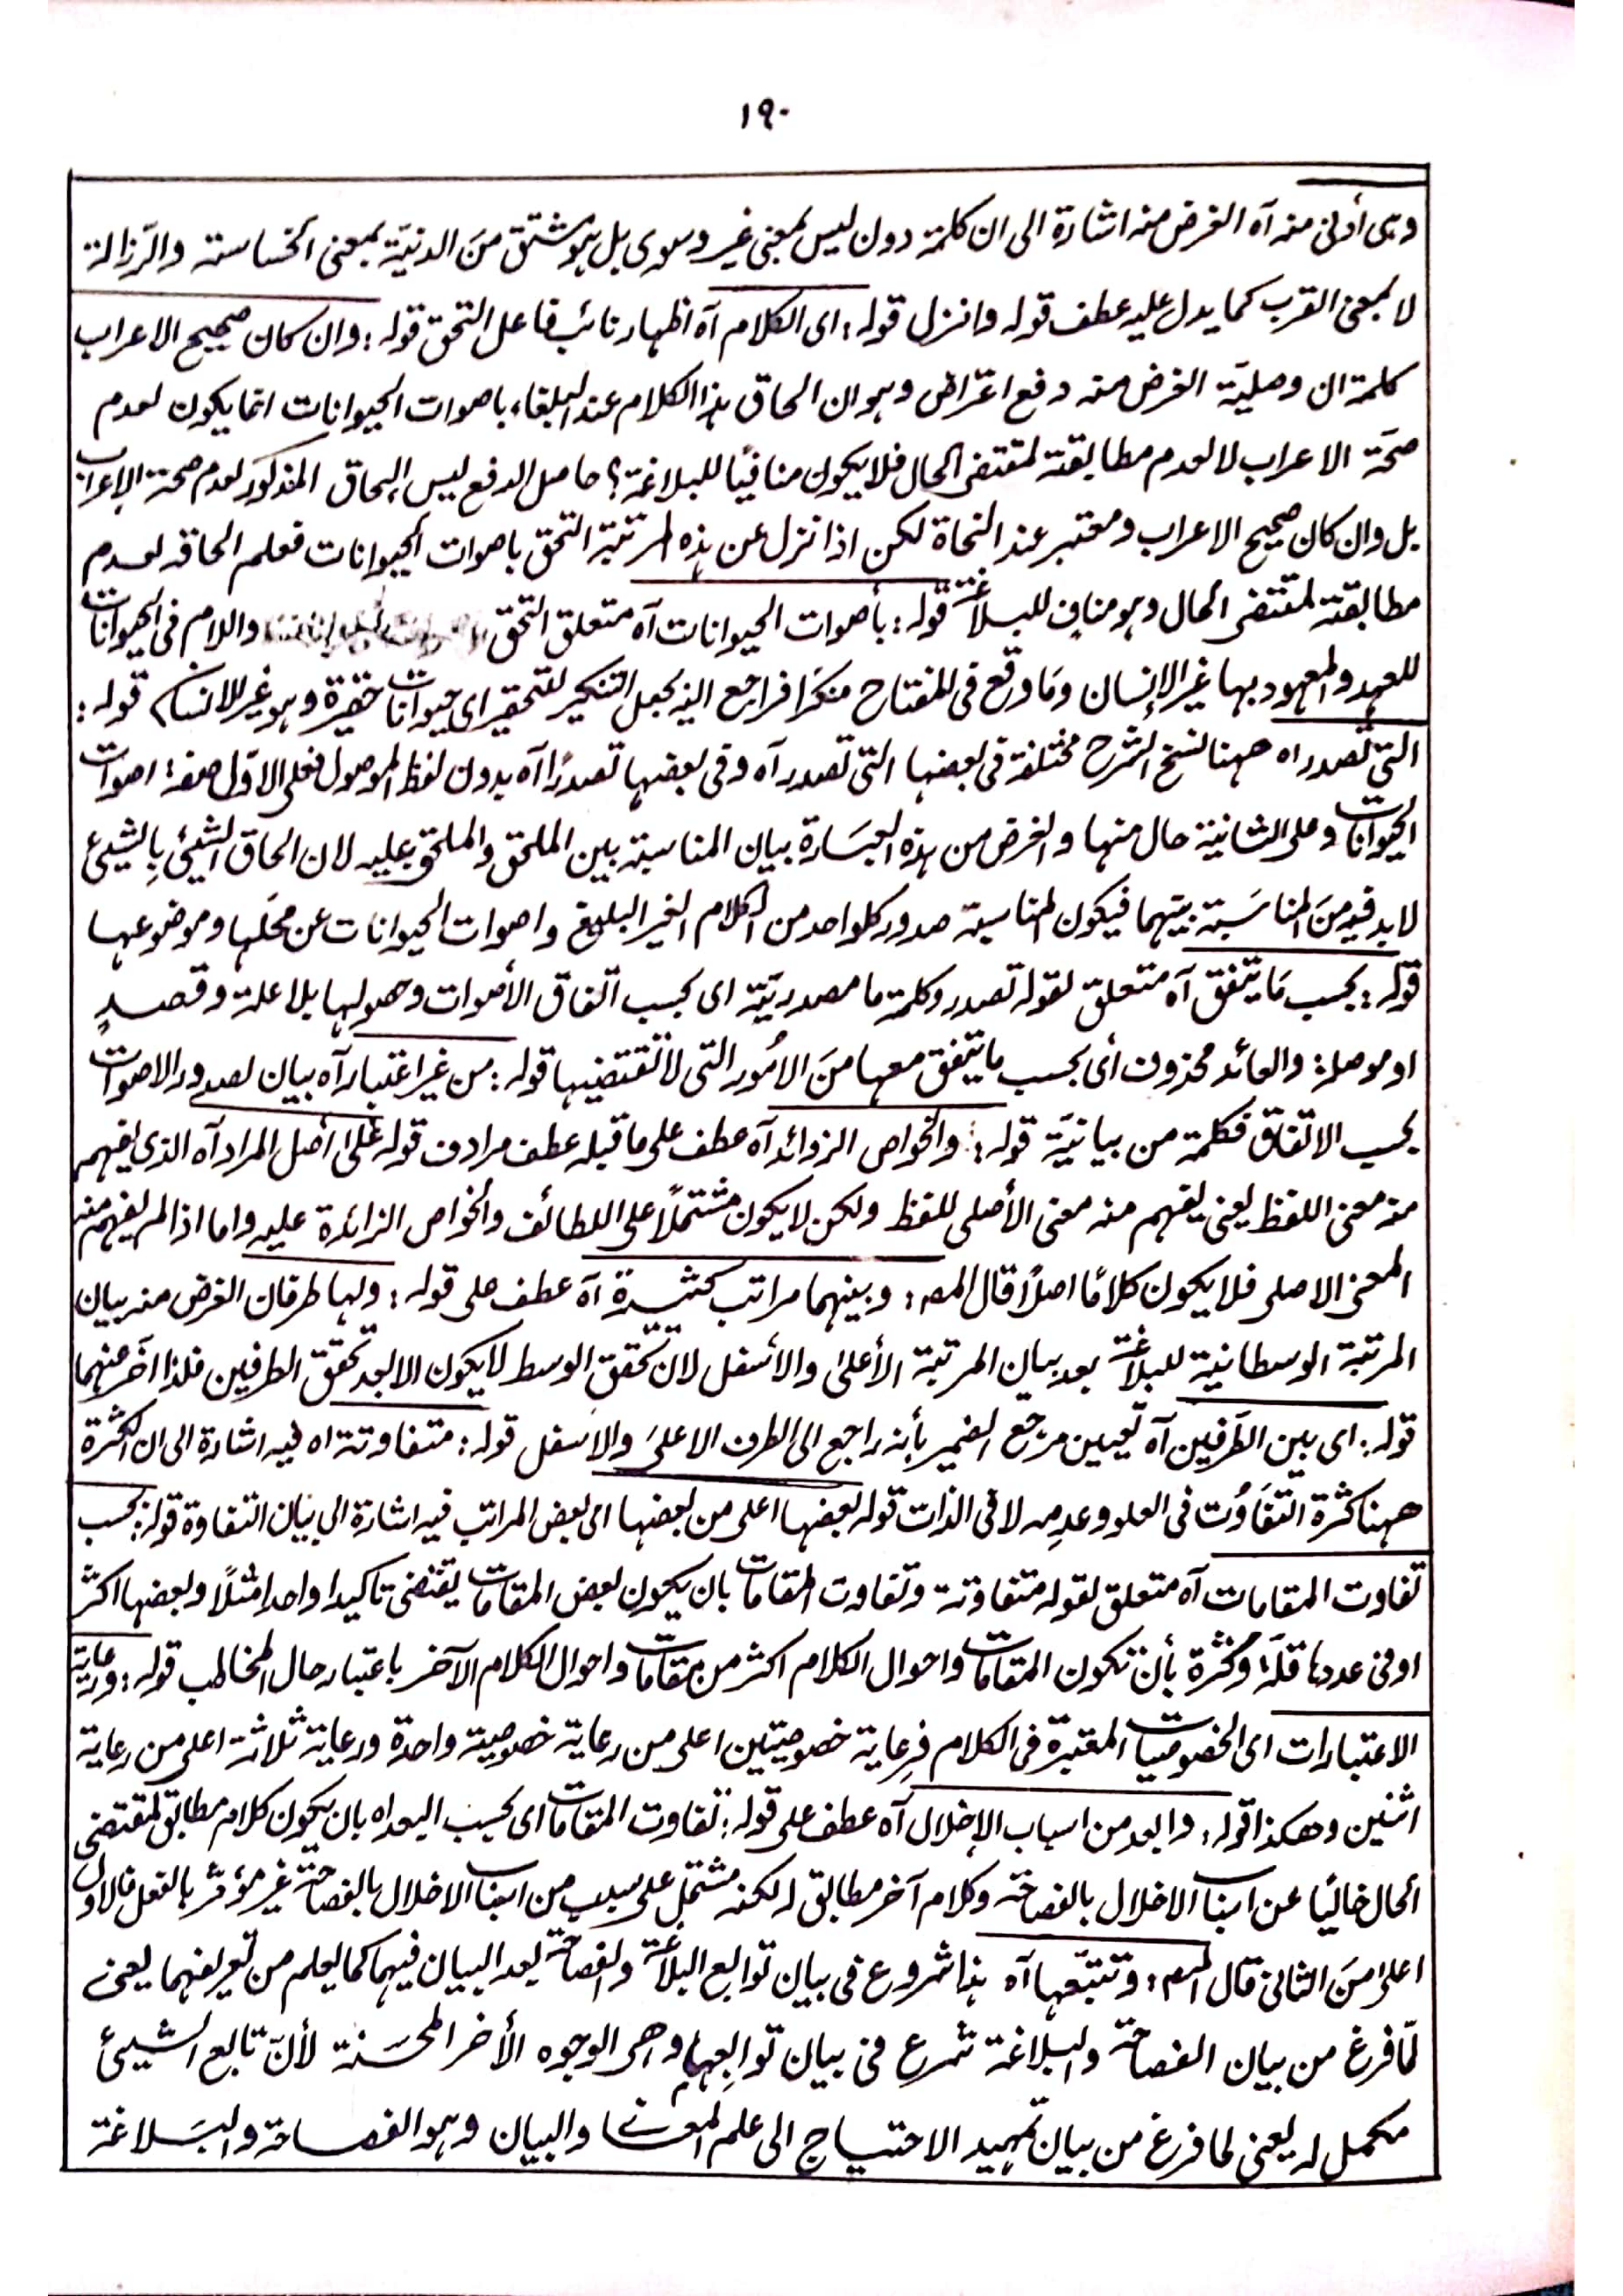 ١٩٠
وهى أدنى منه آه الغرض منه اشارة الى ان كلمة دون ليس بمعنى غير وسوى بل هو مشتق منَ الدنيّة بمعنى الخساسة والرّزالة
لا بمعنى القرب كما يدل عليه عطف قوله وانزل قوله: اى الكلام آه اظهار نائب فاعل التحق قوله: وان كان صحيح الاعراب
كلمة ان وصليّة الغرض منه دفع اعتراض وهو ان الحاق هذا الكلام عند البلغاء باصوات الحيوانات انما يكون لعدم
صحّة الاعراب لا لعدم مطابقته لمقتضى الحال فلا يكون منافيًا للبلاغة؟ حاصل الدفع ليس الحاق المذكور لعدم صحة الإعراب
بل وان كان صحيح الاعراب ومعتبر عند النحاة لكن اذا نزل عن هذه المرتبة التحق باصوات الحيوانات فعلم الحاقه لعدم
مطابقته لمقتضى الحال وهو منافٍ للبلاغة قوله: بأصوات الحيوانات آه متعلق التحق واللام فى الحيوانات
للعهد والمعهود بها غير الإنسان ومَا وقع فى المفتاح منكرًا فراجع اليه بجعل التنكير للتحقير اى حيوانات حقيرة وهو غير الانسان قوله:
التى تصدر اه ههنا نسخ الشرح مختلفة فى بعضها التى تصدر آه وفى بعضها تصدرًا آه بدون لفظ الموصول فعلى الاوّل صفة اصوات
الحيوانات وعلى الثانية حال منها والغرض من هذه العبَارة بيان المناسبة بين الملحق والملحق عليه لان الحاق الشيئ بِالشيئ
لابد فيه منَ المناسَبة بينهما فيكون المناسبة صدور كلواحد من الكلام الغير البليغ واصوات الحيوانات عن محَلها وموضوعها
قوله: بحسب مَا يتفق آه متعلق لقوله تصدر وكلمة ما مصدريّة اى بحسب اتفاق الأصوات وحصولها بلا علة وقصدٍ
او موصلة والعائد محذوف أى بحسب ما يتفق معها منَ الامُور التى لا تقتضيها قوله: من غير اعتبار آه بيان لصدور الاصوات
بحسب الاتفاق فكلمة من بيانيَة قوله: والخواص الزوائد آه عطف على ما قبله عطف مرادف قوله عَلى أصل المراد آه الذى يفهم
منه معنى اللفظ يعنى يفهم منه معنى الأصلى للفظ ولكن لا يكون مشتملًا على اللطائف والخواص الزائدة عليه واما اذا لم يفهم منه
المعنى الاصلى فلا يكون كلامًا اصلًا قال المص: وبينهما مراتب كثيرة آه عطف على قوله: ولها طرفان الغرض منه بيان
المرتبة الوسطانية للبلاغة بعد بيان المرتبة الأعلى والأسفل لان تحقق الوسط لا يكون الا بعد تحقق الطرفين فلذا اخّر عنهما
قوله: اى بين الطّرفين آه تعيين مرجَع الضمير بأنه راجع الى الطرف الاعلىَ والاسفل قوله: متفاوتة اه فيه اشارة الى ان الكثرة
ههنا كثرة التفَاوُت فى العلو وعدِمه لا فى الذات قوله بعضها اعلى من بعضها اى بعض المراتب فيه اشارة الى بيان التفاوة قوله: بحسب
تفاوت المقامات آه متعلق لقوله متفاوتة وتفاوت المقامات بان يكون بعض المقامات يقتضى تاكيدا واحدا مثلًا وبعضها اكثر
او فى عددها قلّةً وكثرة بأنْ تكون المقامات واحوال الكلام اكثر من مقامات واحوال الكلام الآخر باعتبار حال المخاطب قوله: ورعاية
الاعتبارات اى الخصوصيات المعتبرة فى الكلام فرِعاية خصوصيتين اعلى من رعاية خصوصية واحدة ورعاية ثلاثة اعلى من رعاية
اثنين وهكذا قوله: والبعد من اسباب الإخلال آه عطف على قوله: تفاوت المقامات اى بحسب البعد اه بان يكون كلام مطابق لمقتضى
الحال خاليًا عن اسباب الاخلال بالفصاحة وكلام آخر مطابق له لكنه مشتمل على سبب من اسباب الاخلال بالفصاحة غير مؤثر بالفعل فالاول
اعلىٰ منَ الثانى قال المص: وتتبّعها آه هذا شروع فى بيان توابع البلاغة والفصاحة بعد البيان فيهما كما يعلم من تعريفهما يعنى
لمّا فرغ من بيان الفصاحة والبلاغة شرع فى بيان توابِعها وهى الوجوه الأخر المحسّنة لأنّ تابع الشيئ
مكمل له يعنى لما فرغ من بيان تمهيد الاحتياج الى علم المعانى والبيان وهو الفصاحة والبَلاغة